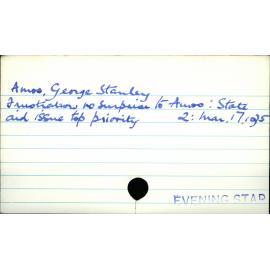 Amos, George Stanley
Frustration no surprise to Amos: State
aid issue top priority 2: Mar. 17, 1975
EVENING STAR